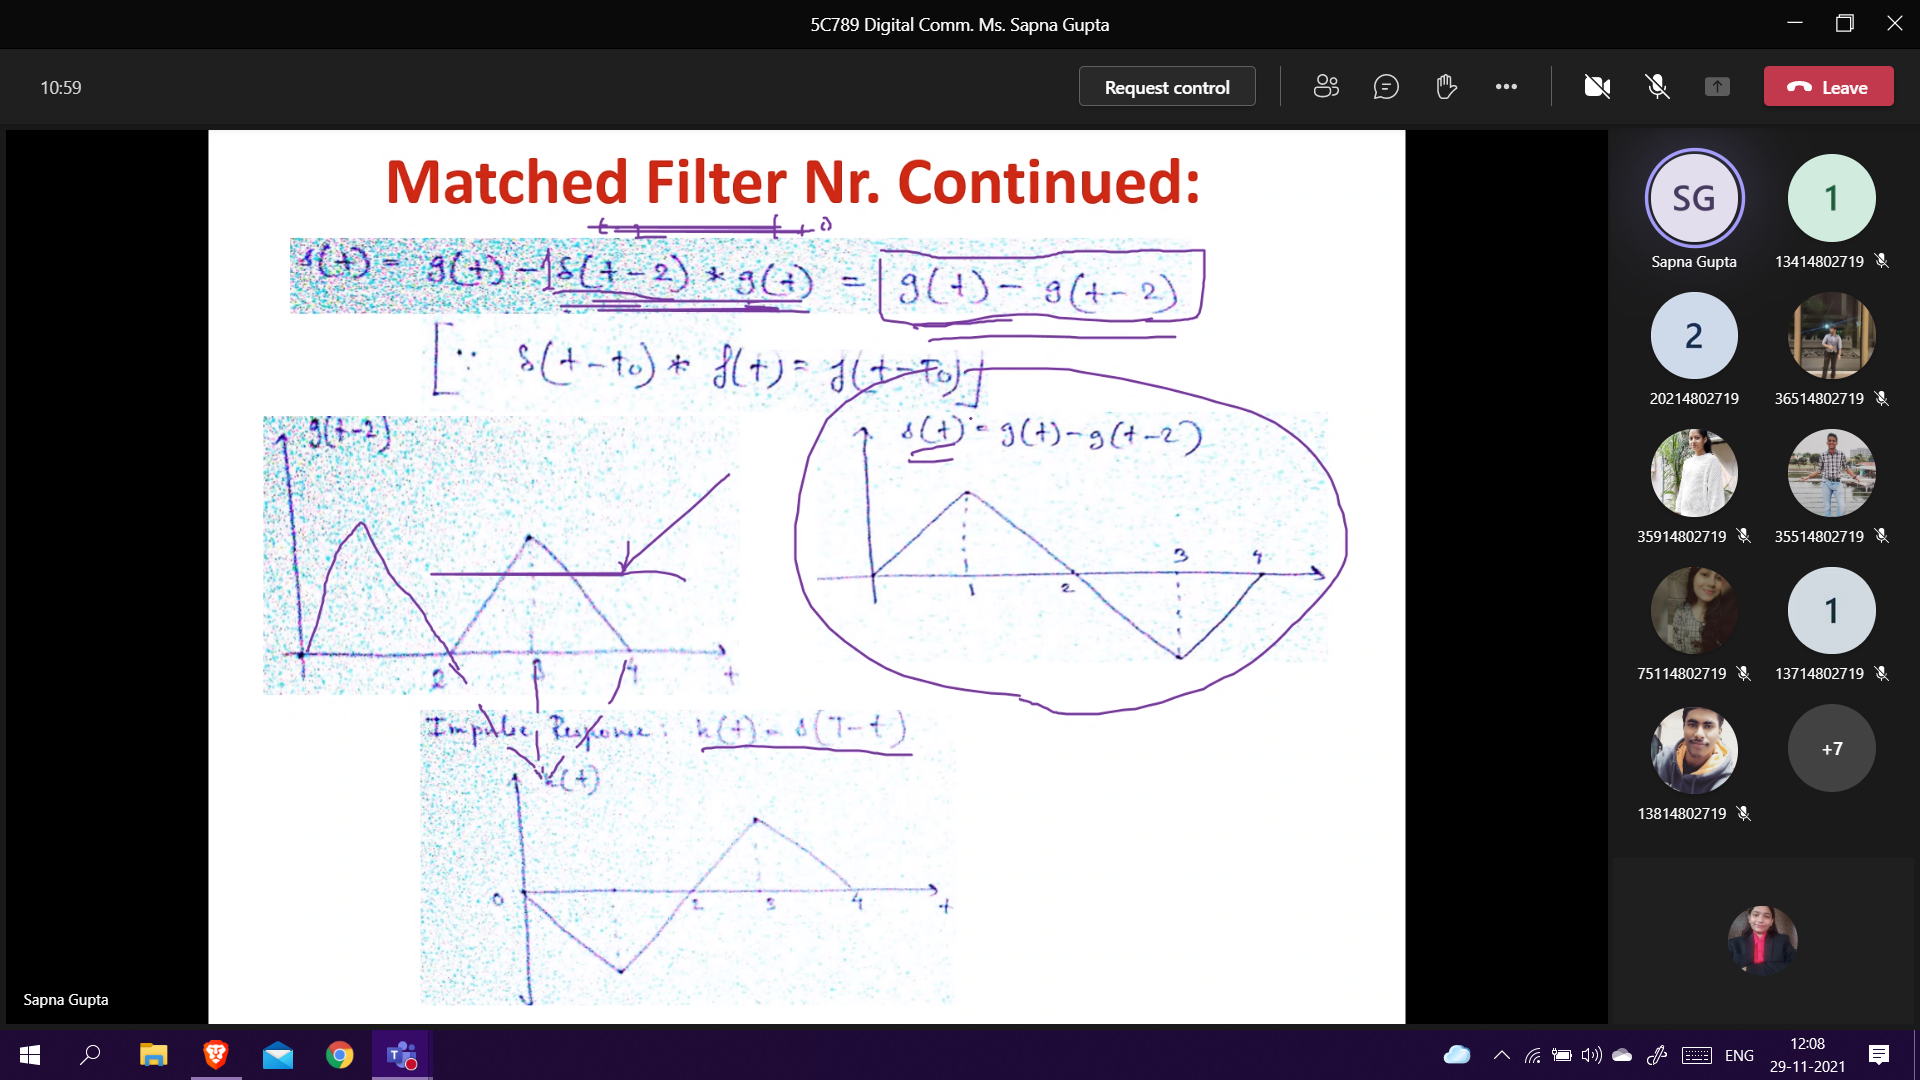 5C789 Digital Comm. Ms. Sapna Gupta
10:59
Request control
Leave
Matched Filter Nr. Continued:
s(t) = g(t) - δ(t-2) * g(t) = g(t) - g(t-2)
[∵ δ(t-t₀) * f(t) = f(t-T₀)]
g(t-2)
2 3 4 t
s(t) = g(t) - g(t-2)
1 2 3 4
Impulse Response: h(t) = s(T-t)
h(t)
0 2 3 4 t
Sapna Gupta
SG
Sapna Gupta
1
13414802719
2
20214802719
36514802719
35914802719
35514802719
75114802719
1
13714802719
13814802719
+7
ENG
12:08
29-11-2021